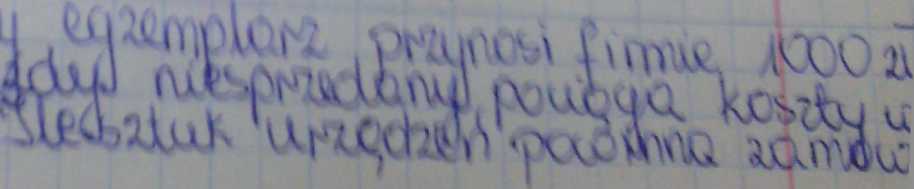 y egzemplarz przynosi firmie 1000 zł
żdy niesprzedany pociąga koszty w
ile sztuk urządzeń powinna zamów